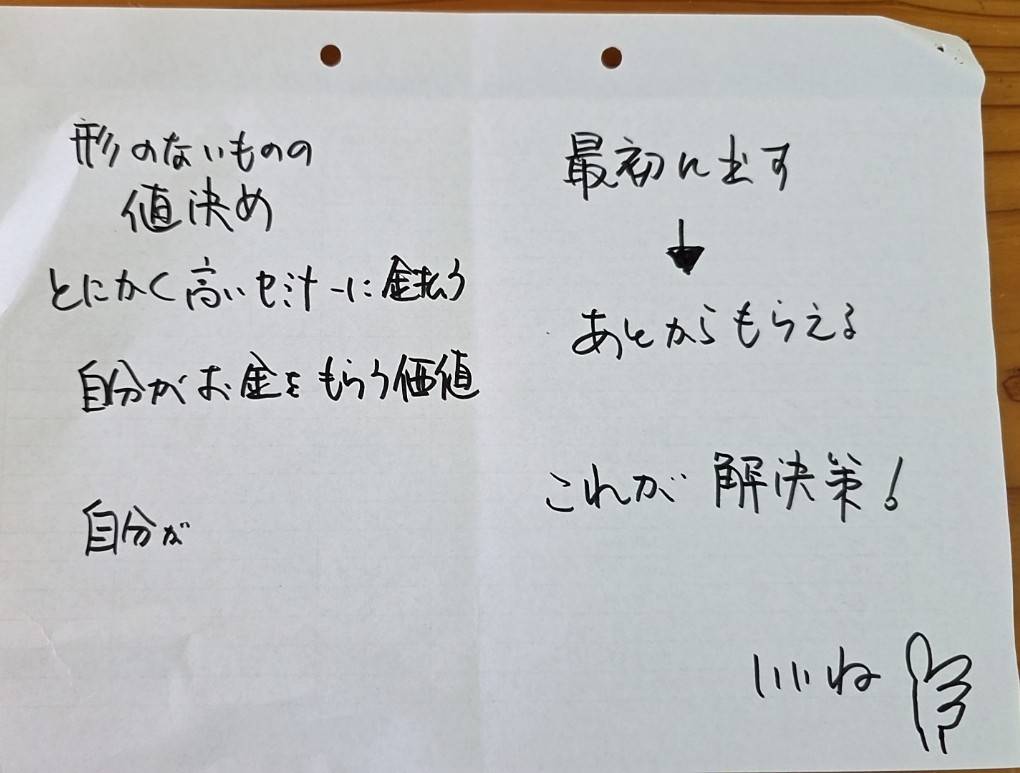 形のないものの
値決め
とにかく高いセミナーに金払う
自分がお金をもらう価値
自分が
最初に出す
↓
あとからもらえる
これが解決策!
いいね